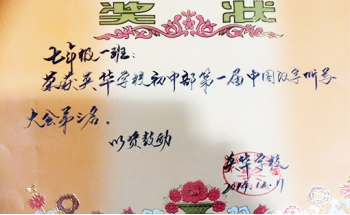 奖状
七年级一班：
荣获英华学校初中部第一届中国汉字听写
大会第三名。
以资鼓励
英华学校
2014.10.11